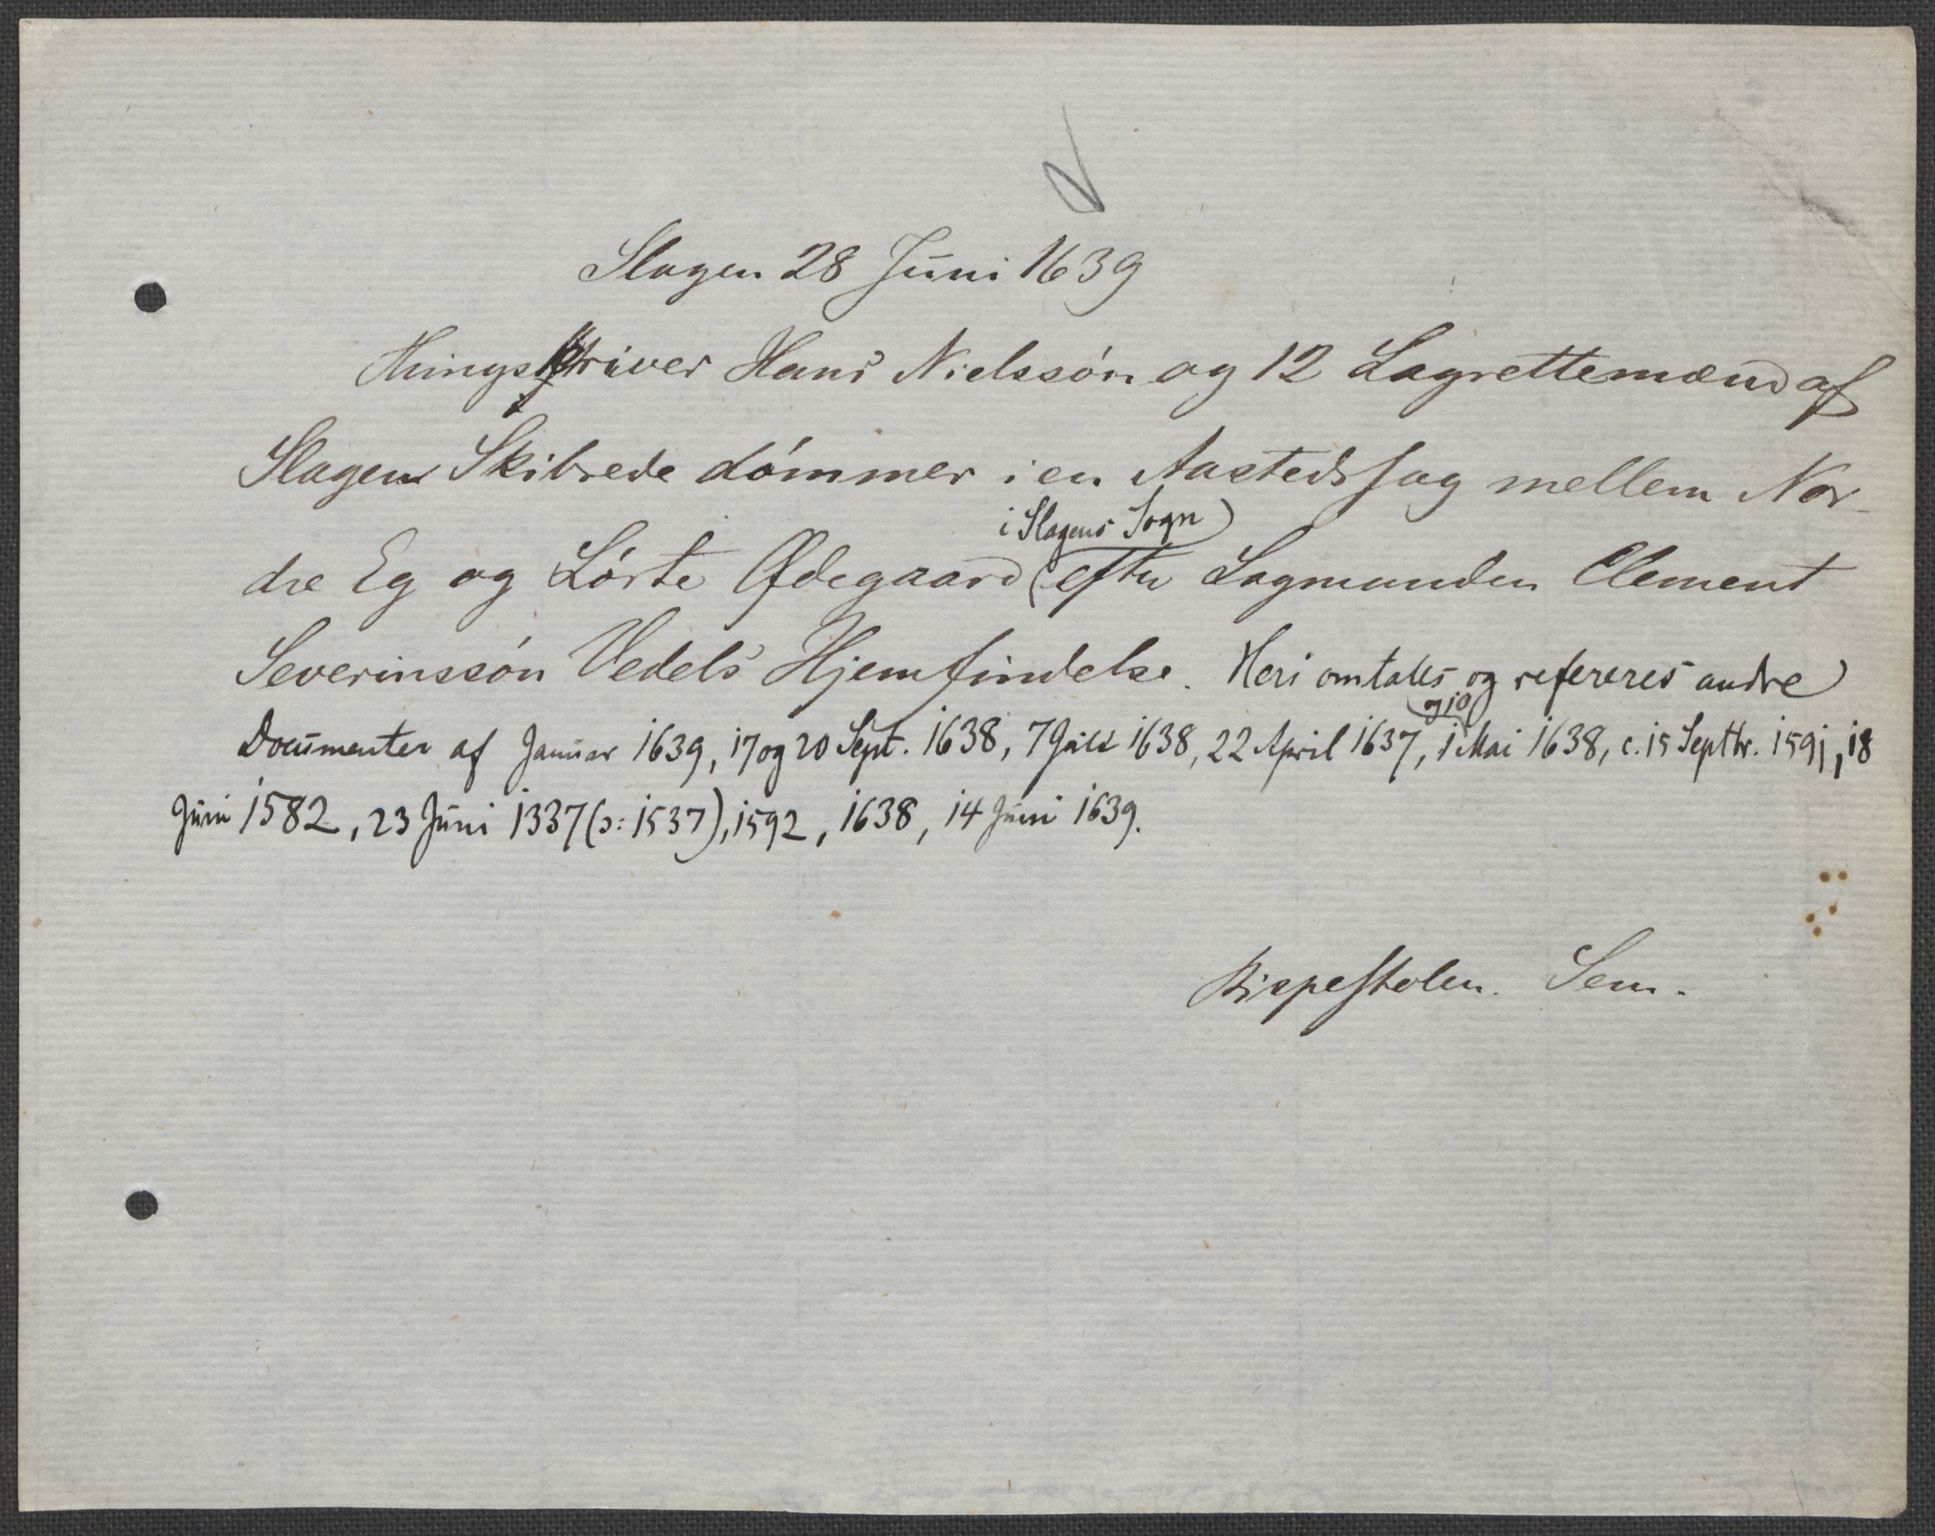 Slagen 28 Juni 1639
Thingskriver Hans Nielssön og 12 Lagrettemænd af
Slagens Skibrede dömmer i en Aastedssag mellem Nor-
dre Eg og Lörte Ødegaard (i Slagens Sogn) efter Lagmanden Clement
Severinssön Vedels Hjemfindelse. Heri omtales og refereres andre
Documenter af Januar 1639, 17 og 20 Sept. 1638, 7 Juli 1638, 22 April 1637, 1 og 10 Mai 1638, c. 15 Septbr. 1591, 18
Juni 1582, 23 Juni 1337 (ɔ: 1537), 1592, 1638, 14 Juni 1639.
Bispestolen. Sem.